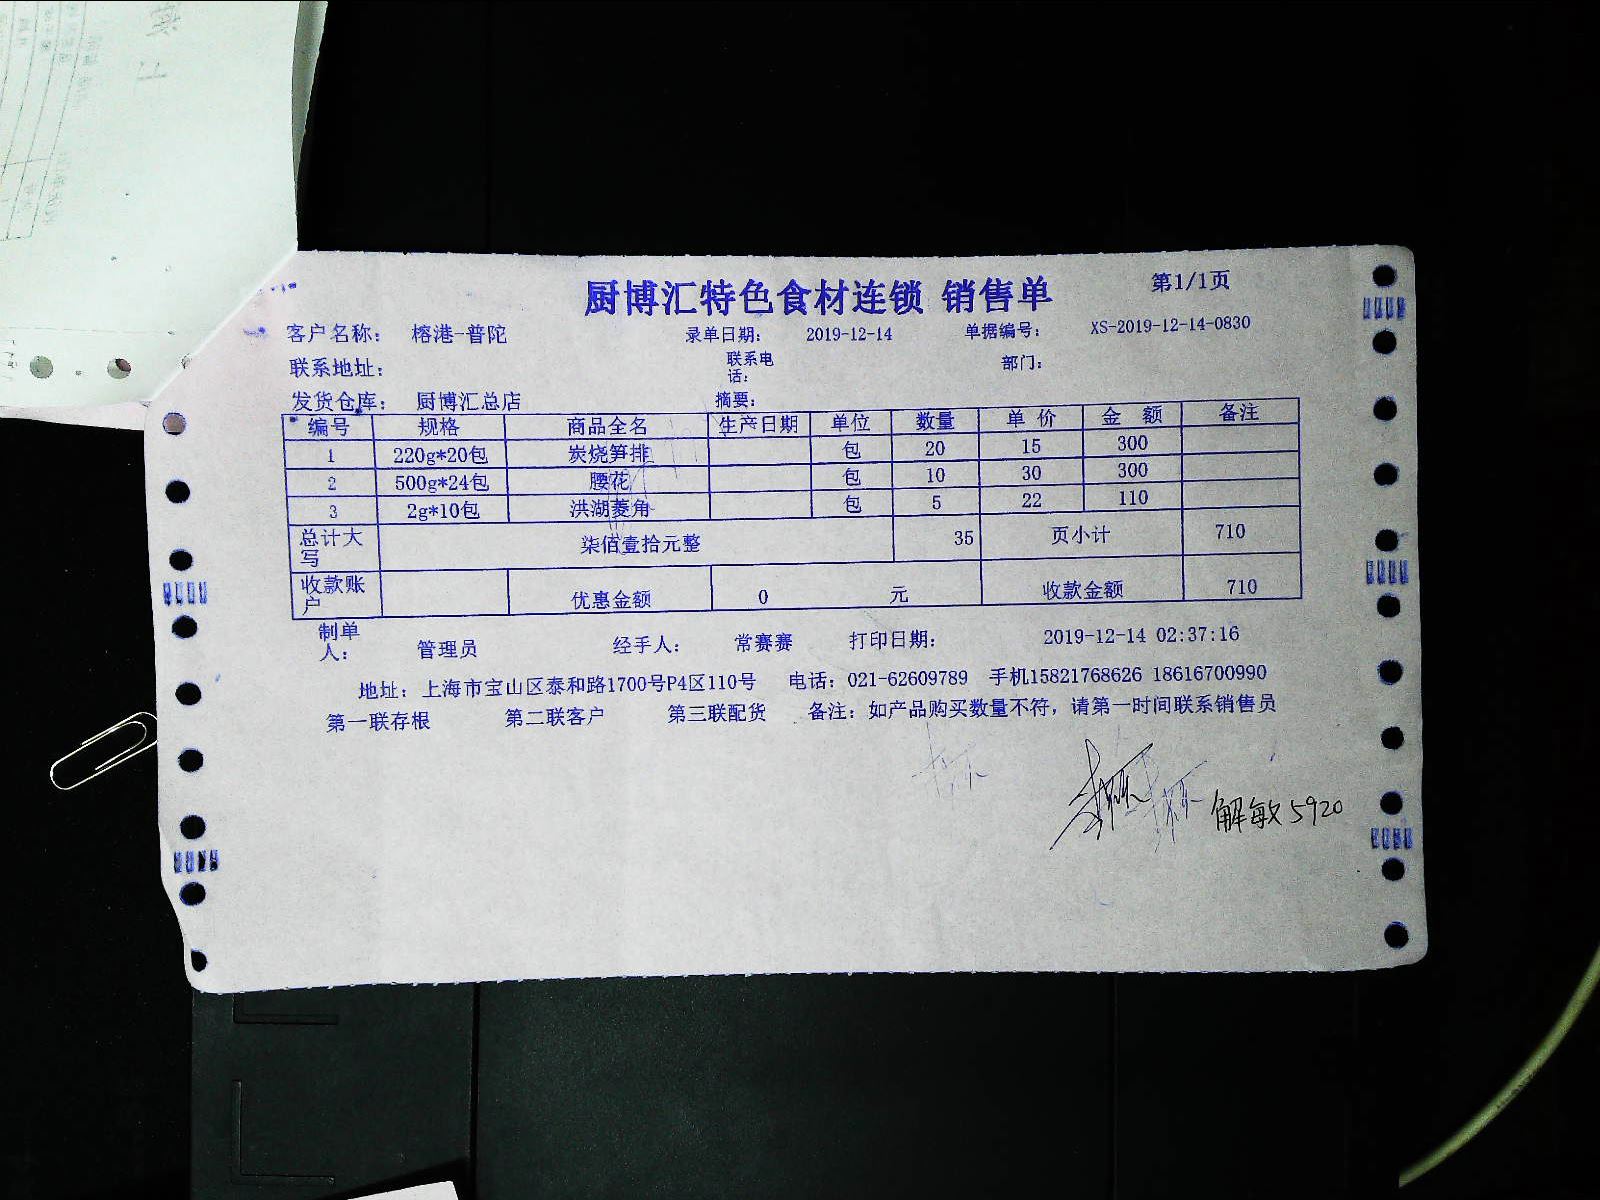 厨博汇特色食材连锁 销售单 第1/1页
客户名称： 榕港-普陀 录单日期： 2019-12-14 单据编号： XS-2019-12-14-0830
联系地址： 联系电话： 部门：
发货仓库： 厨博汇总店 摘要：
编号 规格 商品全名 生产日期 单位 数量 单 价 金 额 备注
1 220g*20包 炭烧笋排 包 20 15 300
2 500g*24包 腰花 包 10 30 300
3 2g*10包 洪湖菱角 包 5 22 110
总计大写 柒佰壹拾元整 35 页小计 710
收款账户 优惠金额 0 元 收款金额 710
制单人： 管理员 经手人： 常赛赛 打印日期： 2019-12-14 02:37:16
地址：上海市宝山区泰和路1700号P4区110号 电话：021-62609789 手机15821768626 18616700990
第一联存根 第二联客户 第三联配货 备注：如产品购买数量不符，请第一时间联系销售员
解敏 5920